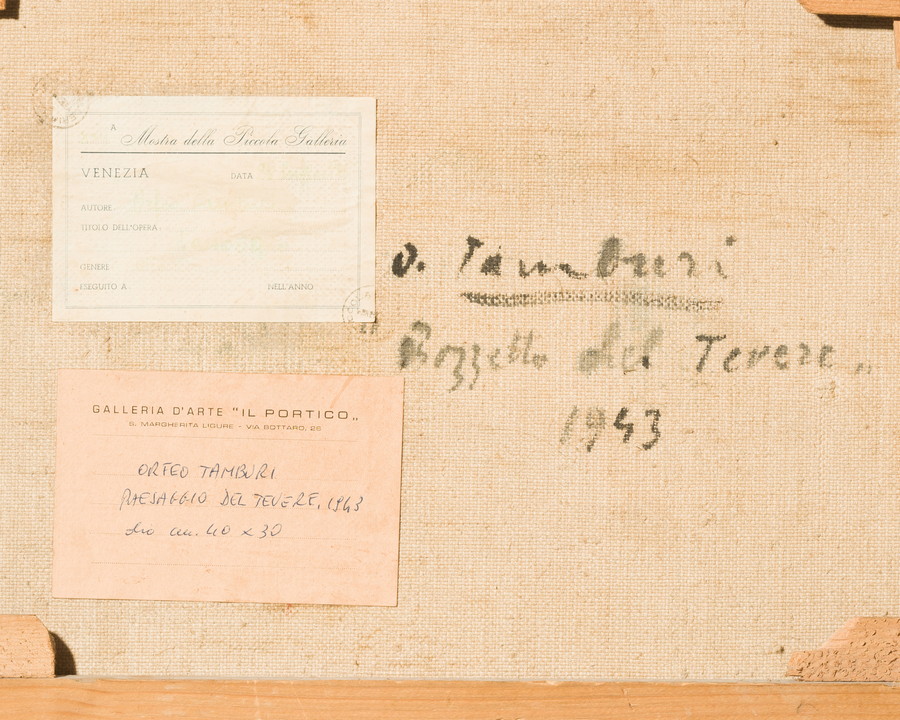 A Mostra della Piccola Galleria
VENEZIA DATA
AUTORE
TITOLO DELL'OPERA
GENERE
ESEGUITO A NELL'ANNO
O. Tamburi
"Bozzetto del Tevere"
1943
GALLERIA D'ARTE "IL PORTICO"
S. MARGHERITA LIGURE - VIA BOTTARO, 28
ORFEO TAMBURI
PAESAGGIO DEL TEVERE, 1943
olio cm. 40 x 30